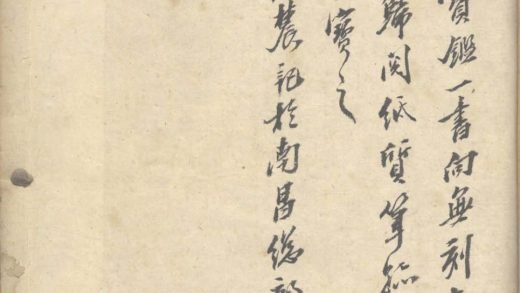 寳鑑一書向無刻
歸閱紙質筆
寶之
農記於南昌總